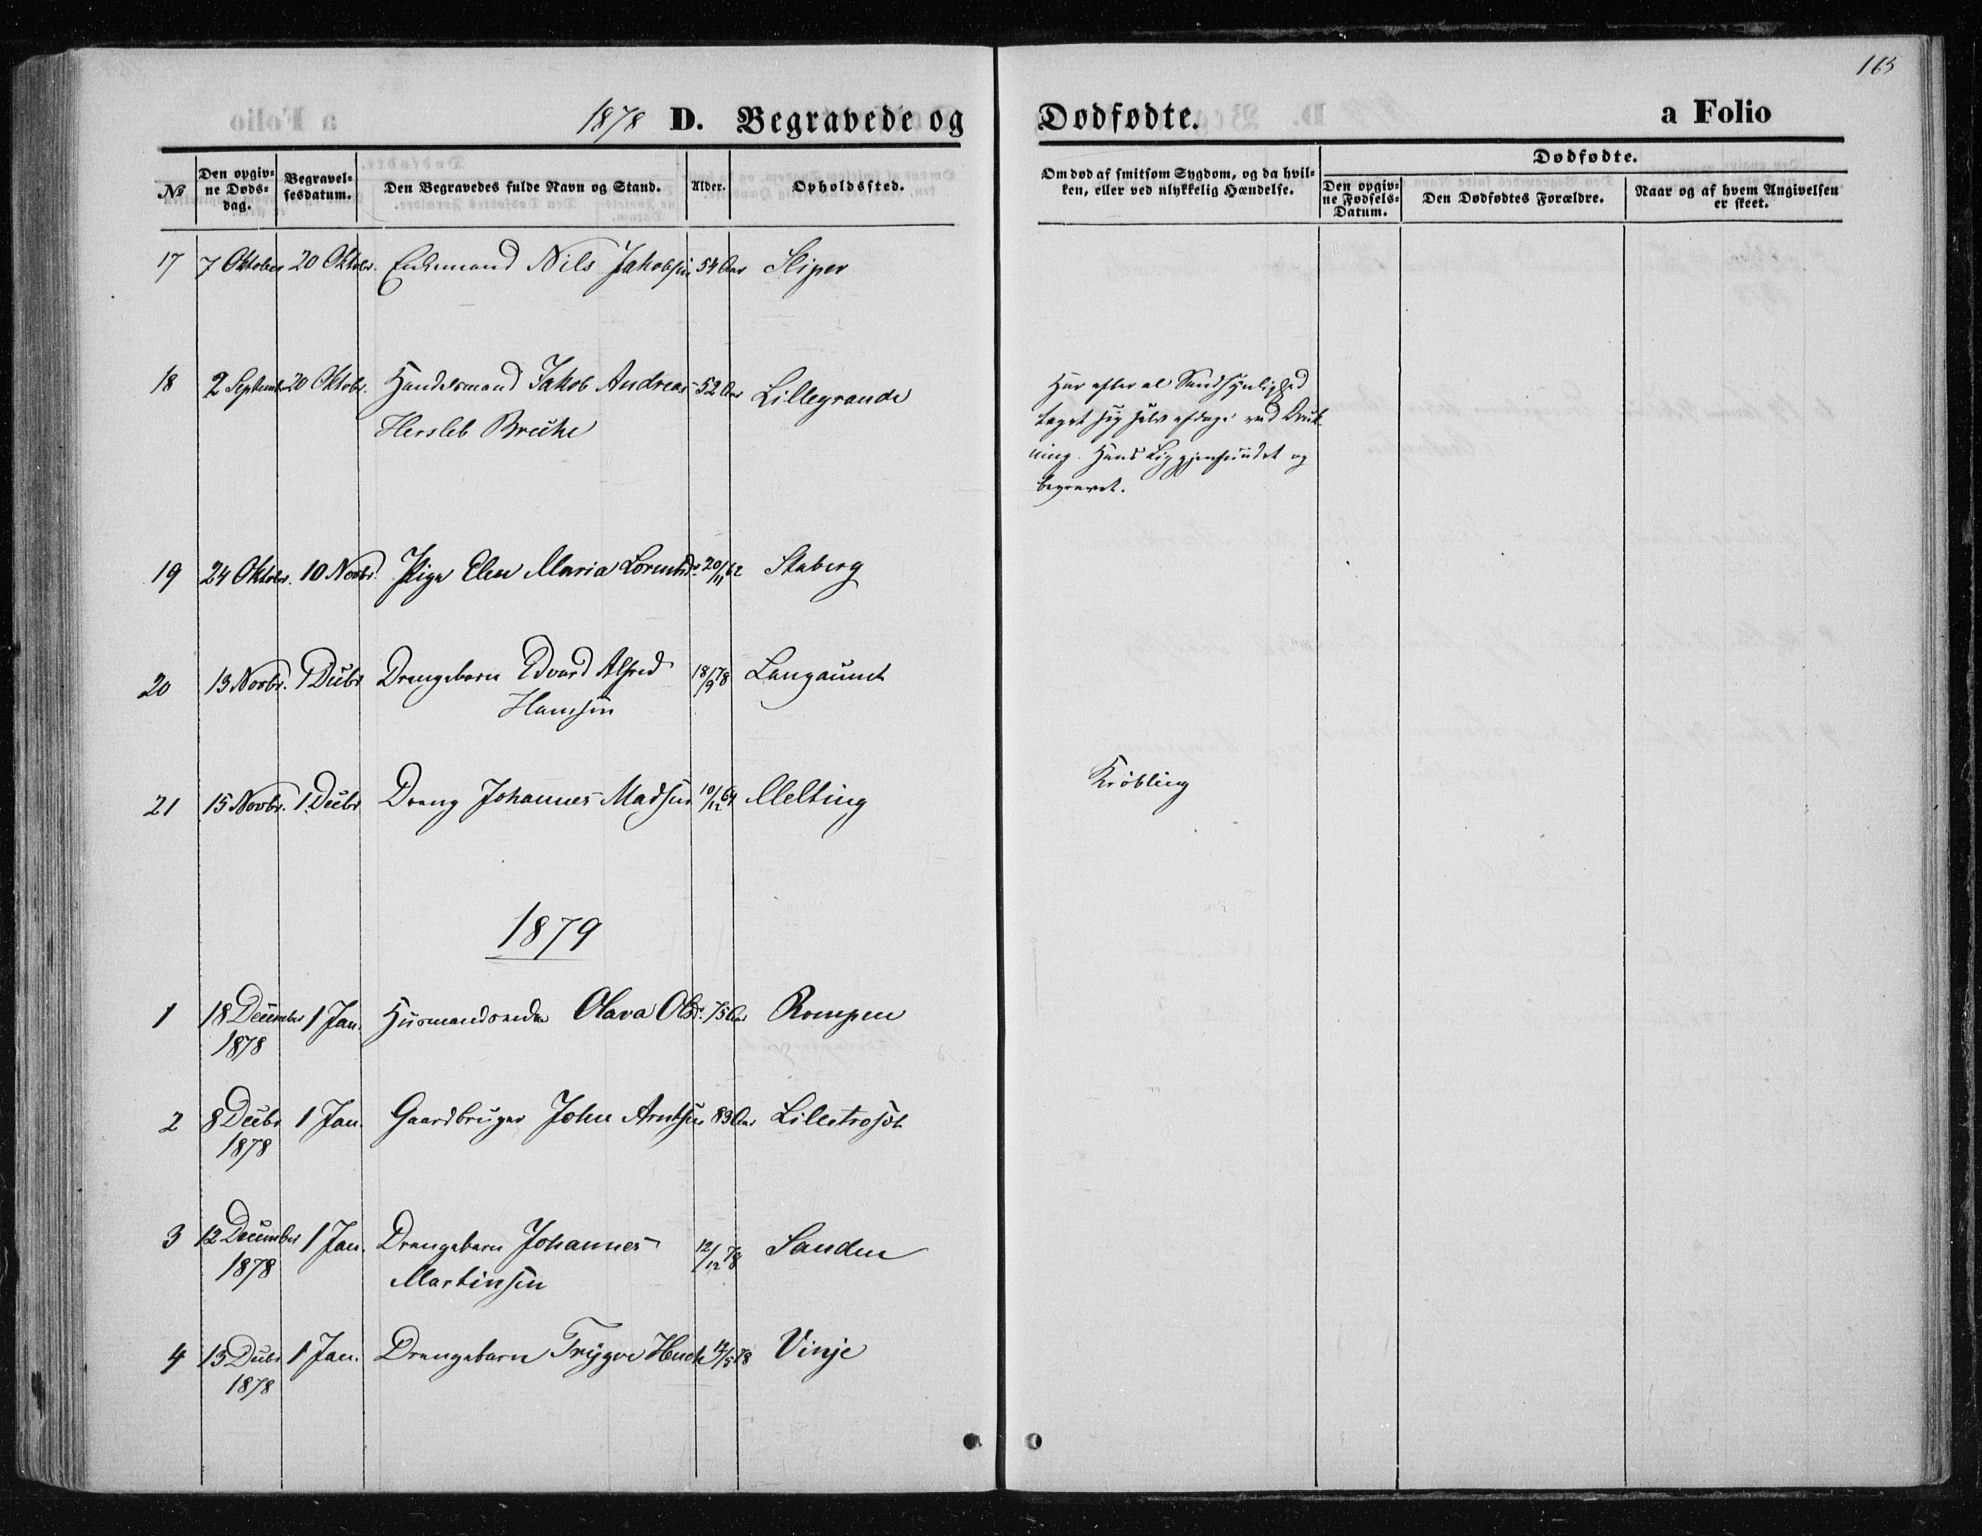 163
1878 D. Begravede og Dødfødte. a Folio
Dødfødte.
№ Den opgivne Dødsdag. Begravelsesdatum. Den Begravedes fulde Navn og Stand. Alder. Opholdssted. Om død af smitsom Sygdom, og da hvilken, eller ved ulykkelig Hændelse. Den opgivne Fødsels-Datum. Den Dødfødtes Forældre. Naar og af hvem Angivelsen er skeet.
17 7 Oktober 20 Oktobr. Enkemand Nils Jakobsen 54 Aar Sliper
18 2 Septembr 20 Oktobr. Handelsmand Jakob Andreas 52 Aar Lillegrande
Hersleb Brühe
Har efter al Sandsynlighed
taget sig selv afdage ved Druk-
ning. Hans Lig gjenfundet og
begravet.
19 24 Oktobr. 10 Novbr. Pige Elen Maria Lorentsdr. 20/11 62 Staberg
20 13 Novbr. 1 Decbr Drengebarn Edvard Alfred 18/9 78 Langaunet
Hansen
21 15 Novbr. 1. Decbr Dreng Johannes Madsen 10/12 64 Melting Krøbling
1879
1 18 December 1 Jan. Husmandsenke Olava Olsdr. 75 Aar Rompen
1878
2 8 Decbr 1 Jan. Gaardbruger John Arntsen 83 Aar Lilletrøset
1878
3 12 December 1 Jan. Drengebarn Johannes 12/12 78 Sanden
1878 Martinsen
4 13 Decbr 1 Jan. Drengebarn Trygve Huch 14/5 78 Vinje
1878